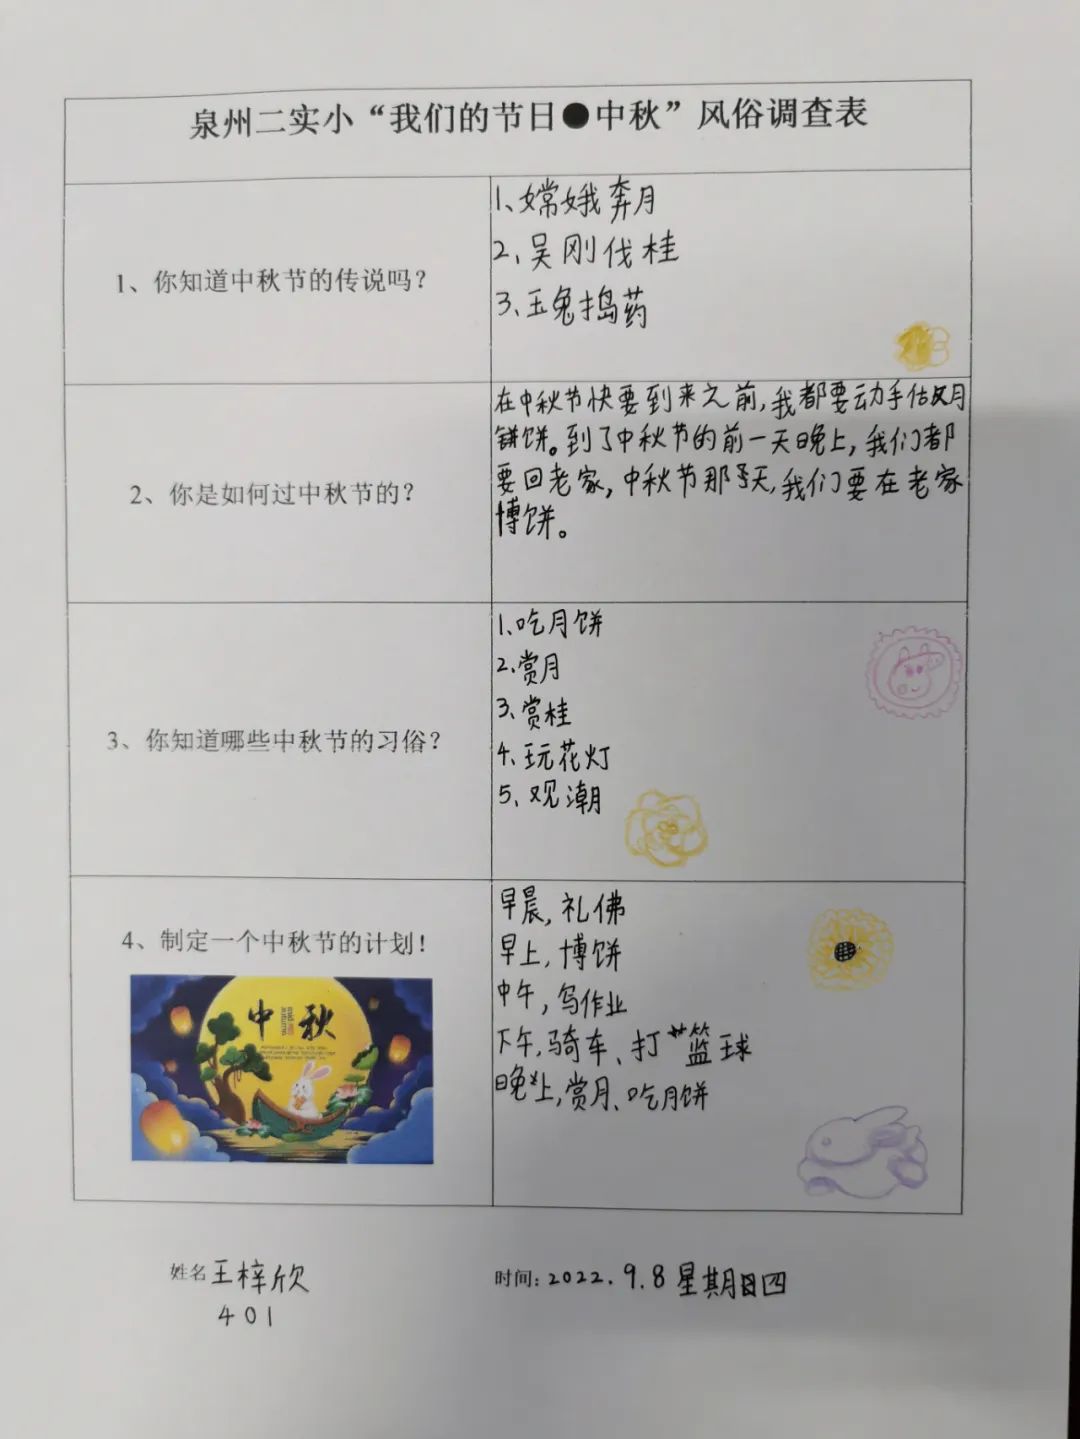 泉州二实小“我们的节日●中秋”风俗调查表
1、你知道中秋节的传说吗？
1、嫦娥奔月
2、吴刚伐桂
3、玉兔捣药
2、你是如何过中秋节的？
在中秋节快要到来之前，我都要动手做月
饼。到了中秋节的前一天晚上，我们都
要回老家，中秋节那天，我们要在老家
博饼。
3、你知道哪些中秋节的习俗？
1、吃月饼
2、赏月
3、赏桂
4、玩花灯
5、观潮
4、制定一个中秋节的计划！
中秋
早晨，礼佛
早上，博饼
中午，写作业
下午，骑车、打篮球
晚上，赏月、吃月饼
姓名 王梓欣
401
时间：2022.9.8 星期四